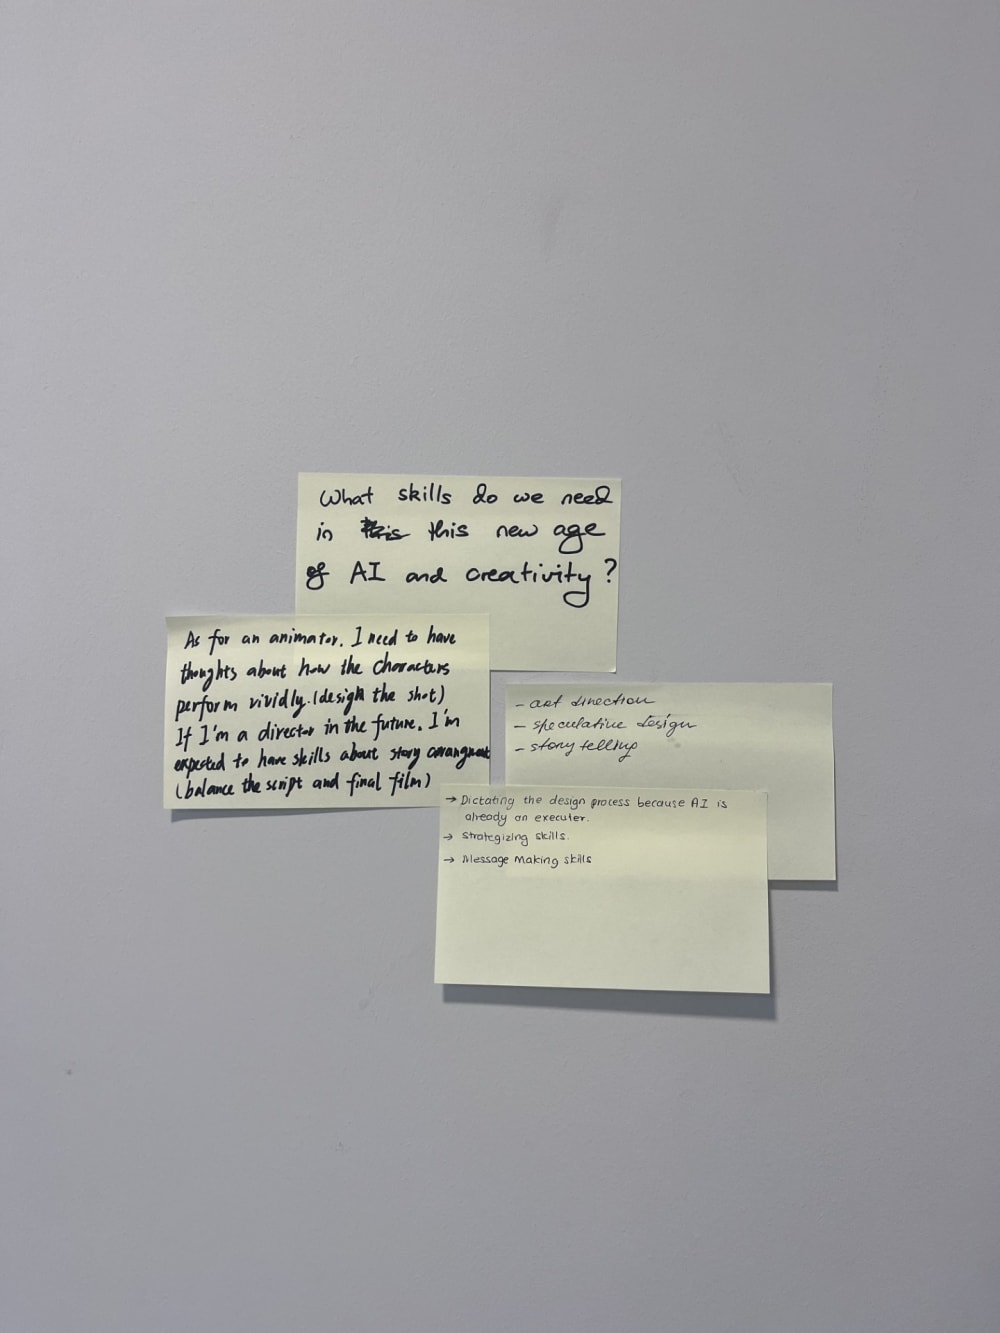 What skills do we need
in this this new age
of AI and creativity?
As for an animator. I need to have
thoughts about how the characters
perform vividly. (design the shot)
If I'm a director in the future. I'm
expected to have skills about story
(balance the script and final film)
- art direction
- speculative design
- story telling
→ Dictating the design process because AI is
already an executer.
→ Strategizing skills.
→ Message Making skills